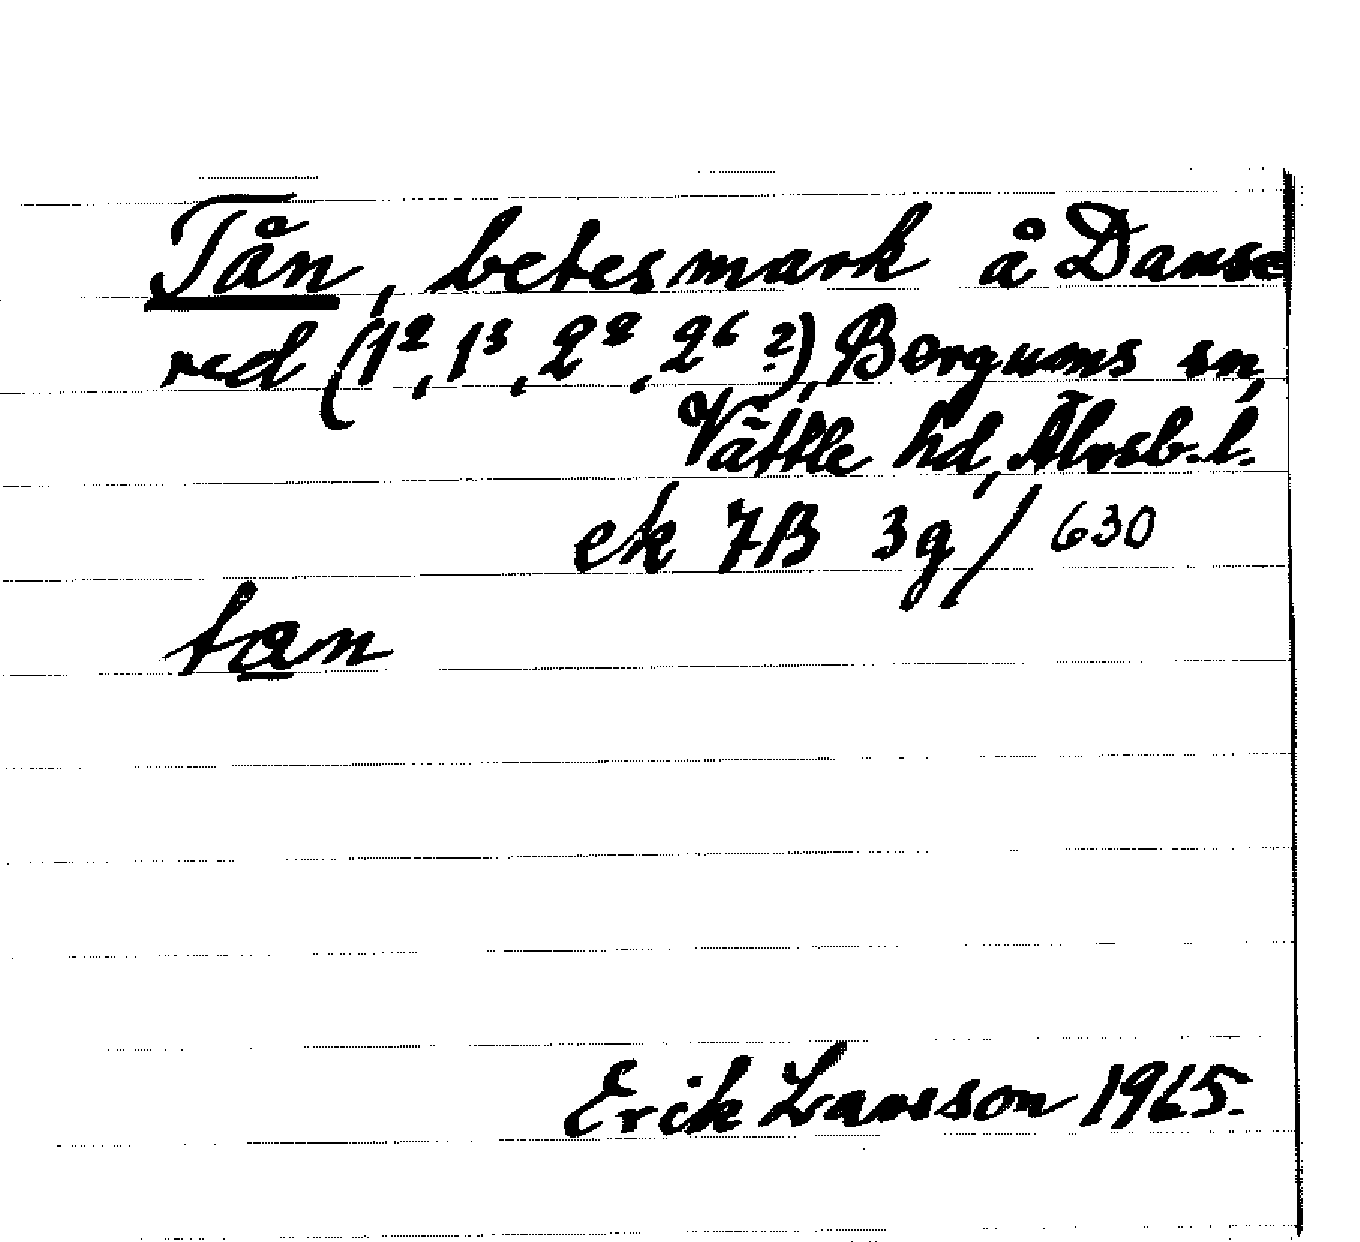 Tån, betesmark å Danse
red (1², 1³, 2², 2⁶ ?), Bergums sn,
Vättle hd, Älvsb. l.
ek 7B 3g / 630
tan
Erik Larsson 1965.